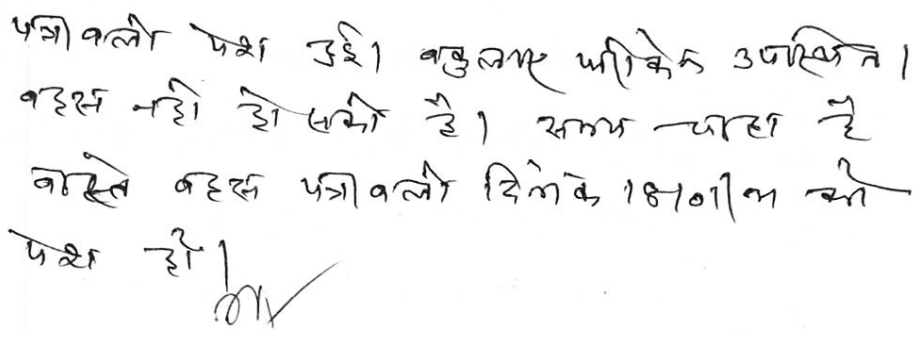 पत्रावली पेश हुई। वकुलाए फरिकेन उपस्थित।
बहस नही हो सकी है। समय चाहा है
वास्ते बहस पत्रावली दिनांक को
पेश हो।